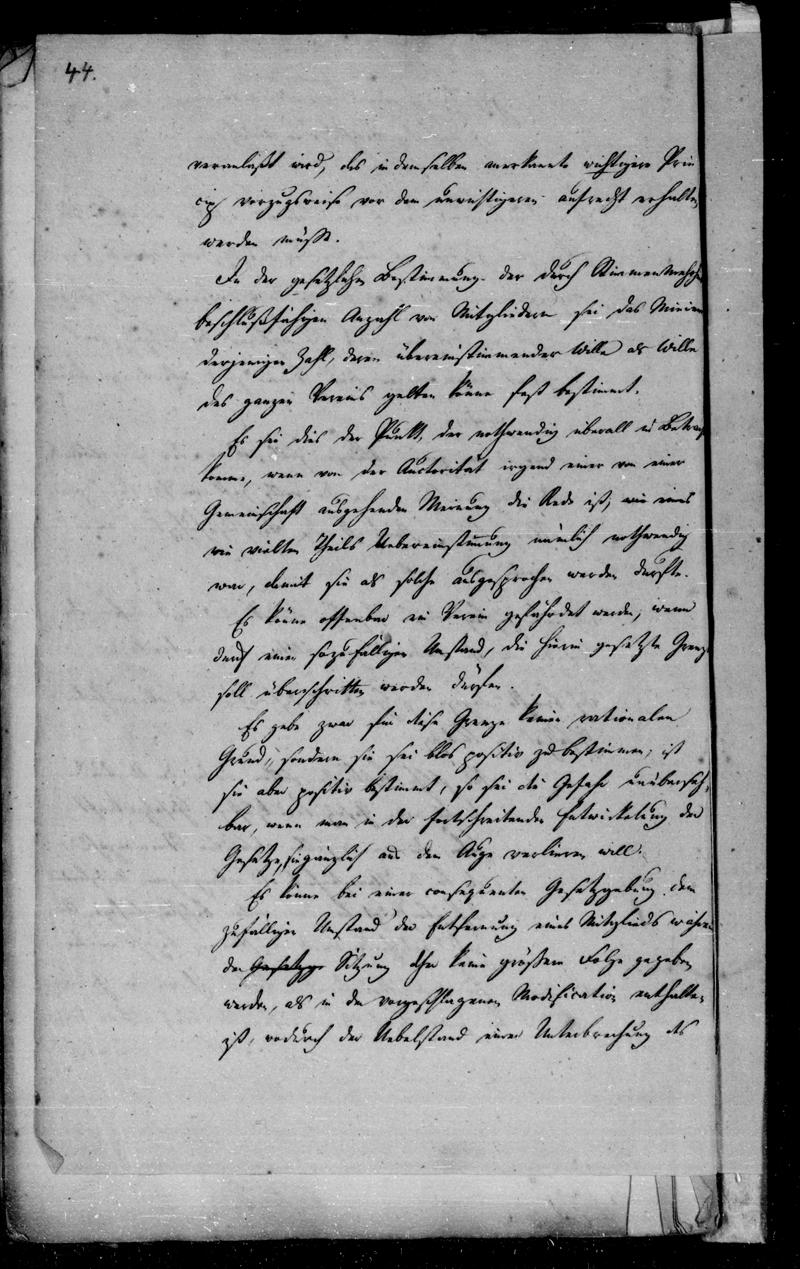 44.
veranlaßt wird, das in demselben anerkannte wichtigere Prin
cip vorzugsweise vor dem unwichtigeren aufrecht erhalten
werden müsse.
In der gesetzlichen Bestimmung der durch Stimmenmehrh
beschlußfähigen Anzahl von Mitgliedern sei das Minim
derjenigen Zahl, deren übereinstimmender Wille als Wille
des ganzen Vereins gelten könne fest bestimmt.
Es sei dies der Punkt, der nothwendig überall in Betrach
komme, wenn von der Auctorität irgend einer von einer
Gemeinschaft ausgehenden Meinung die Rede ist, wie eines
wie vielten Theils Uebereinstimmung nämlich nothwendig
war, damit sie als solche ausgesprochen werden durfte.
Es könne offenbar ein Verein gefährdet werden, wenn
durch einen zufälligen Umstand, die hierin gesetzte Grenze
soll überschritten werden dürfen.
Es gebe zwar für diese Grenze keinen rationalen
Grund, sondern sie sei blos positiv zu bestimmen, ist
sie aber positiv bestimmt, so sei die Gefahr unüberseh-
bar, wenn man in der fortschreitenden Entwickelung der
Gesetze, sie gänzlich aus dem Auge verlieren will.
Es könne bei einer consequenten Gesetzgebung dem
zufälligen Umstand der Entfernung eines Mitglieds währen
der Sitzung keine größere Folge gegeben
werden, als in der vorgeschlagenen Modification enthalten
ist, wodurch der Uebelstand einer Unterbrechung des